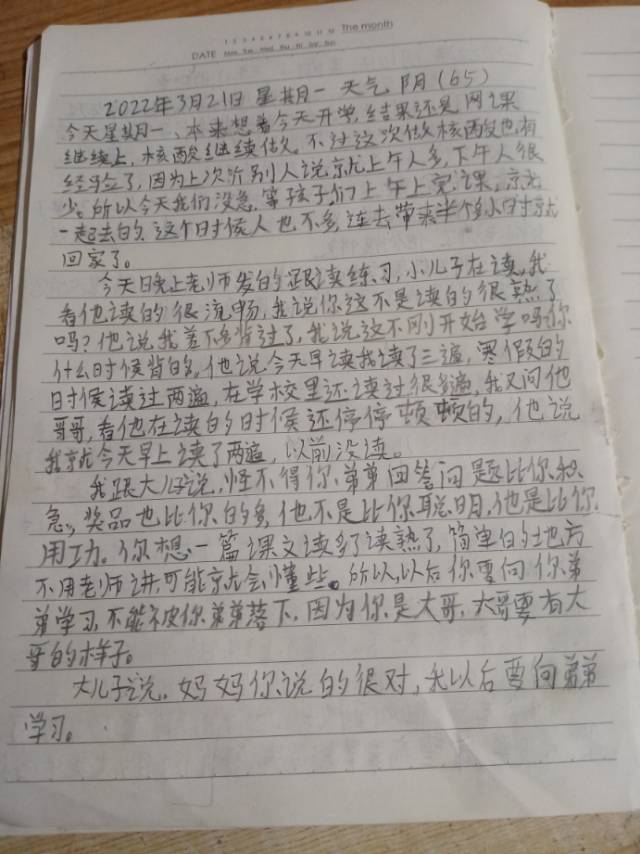 The month
DATE
Mon Tue Wed Thu Fri Sat Sun
2022年3月21日 星期一 天气 阴(65)
今天星期一、本来想着今天开学,结果还是网课
继续上,核酸继续做。不过这次做核酸也有
经验了,因为上次听别人说就上午人多,下午人很
少。所以今天我们没急,等孩子们上午上完课,就
一起去的。这个时候人也不多,连去带来半个多小时就
回家了。
今天晚上老师发的跟读练习,小儿子在读,我
看他读的很流畅,我说你这不是读的很熟了
吗?他说我差不多背过了,我说这不刚开始学吗,你
什么时候背的,他说今天早读我读了三遍,寒假的
时候读过两遍,在学校里还读过很多遍,我又问他
哥哥,看他在读的时候还停停顿顿的,他说
我就今天早上读了两遍,以前没读。
我跟大儿子说,怪不得你弟弟回答问题比你积
急,奖品也比你的多,他不是比你聪明,他是比你
用功。你想一篇课文读多了读熟了,简单的地方
不用老师讲,可能就会懂些。所以,以后你要向你弟
弟学习,不能被你弟弟落下,因为你是大哥,大哥要有大
哥的样子。
大儿子说,妈妈你说的很对,我以后要向弟弟
学习。